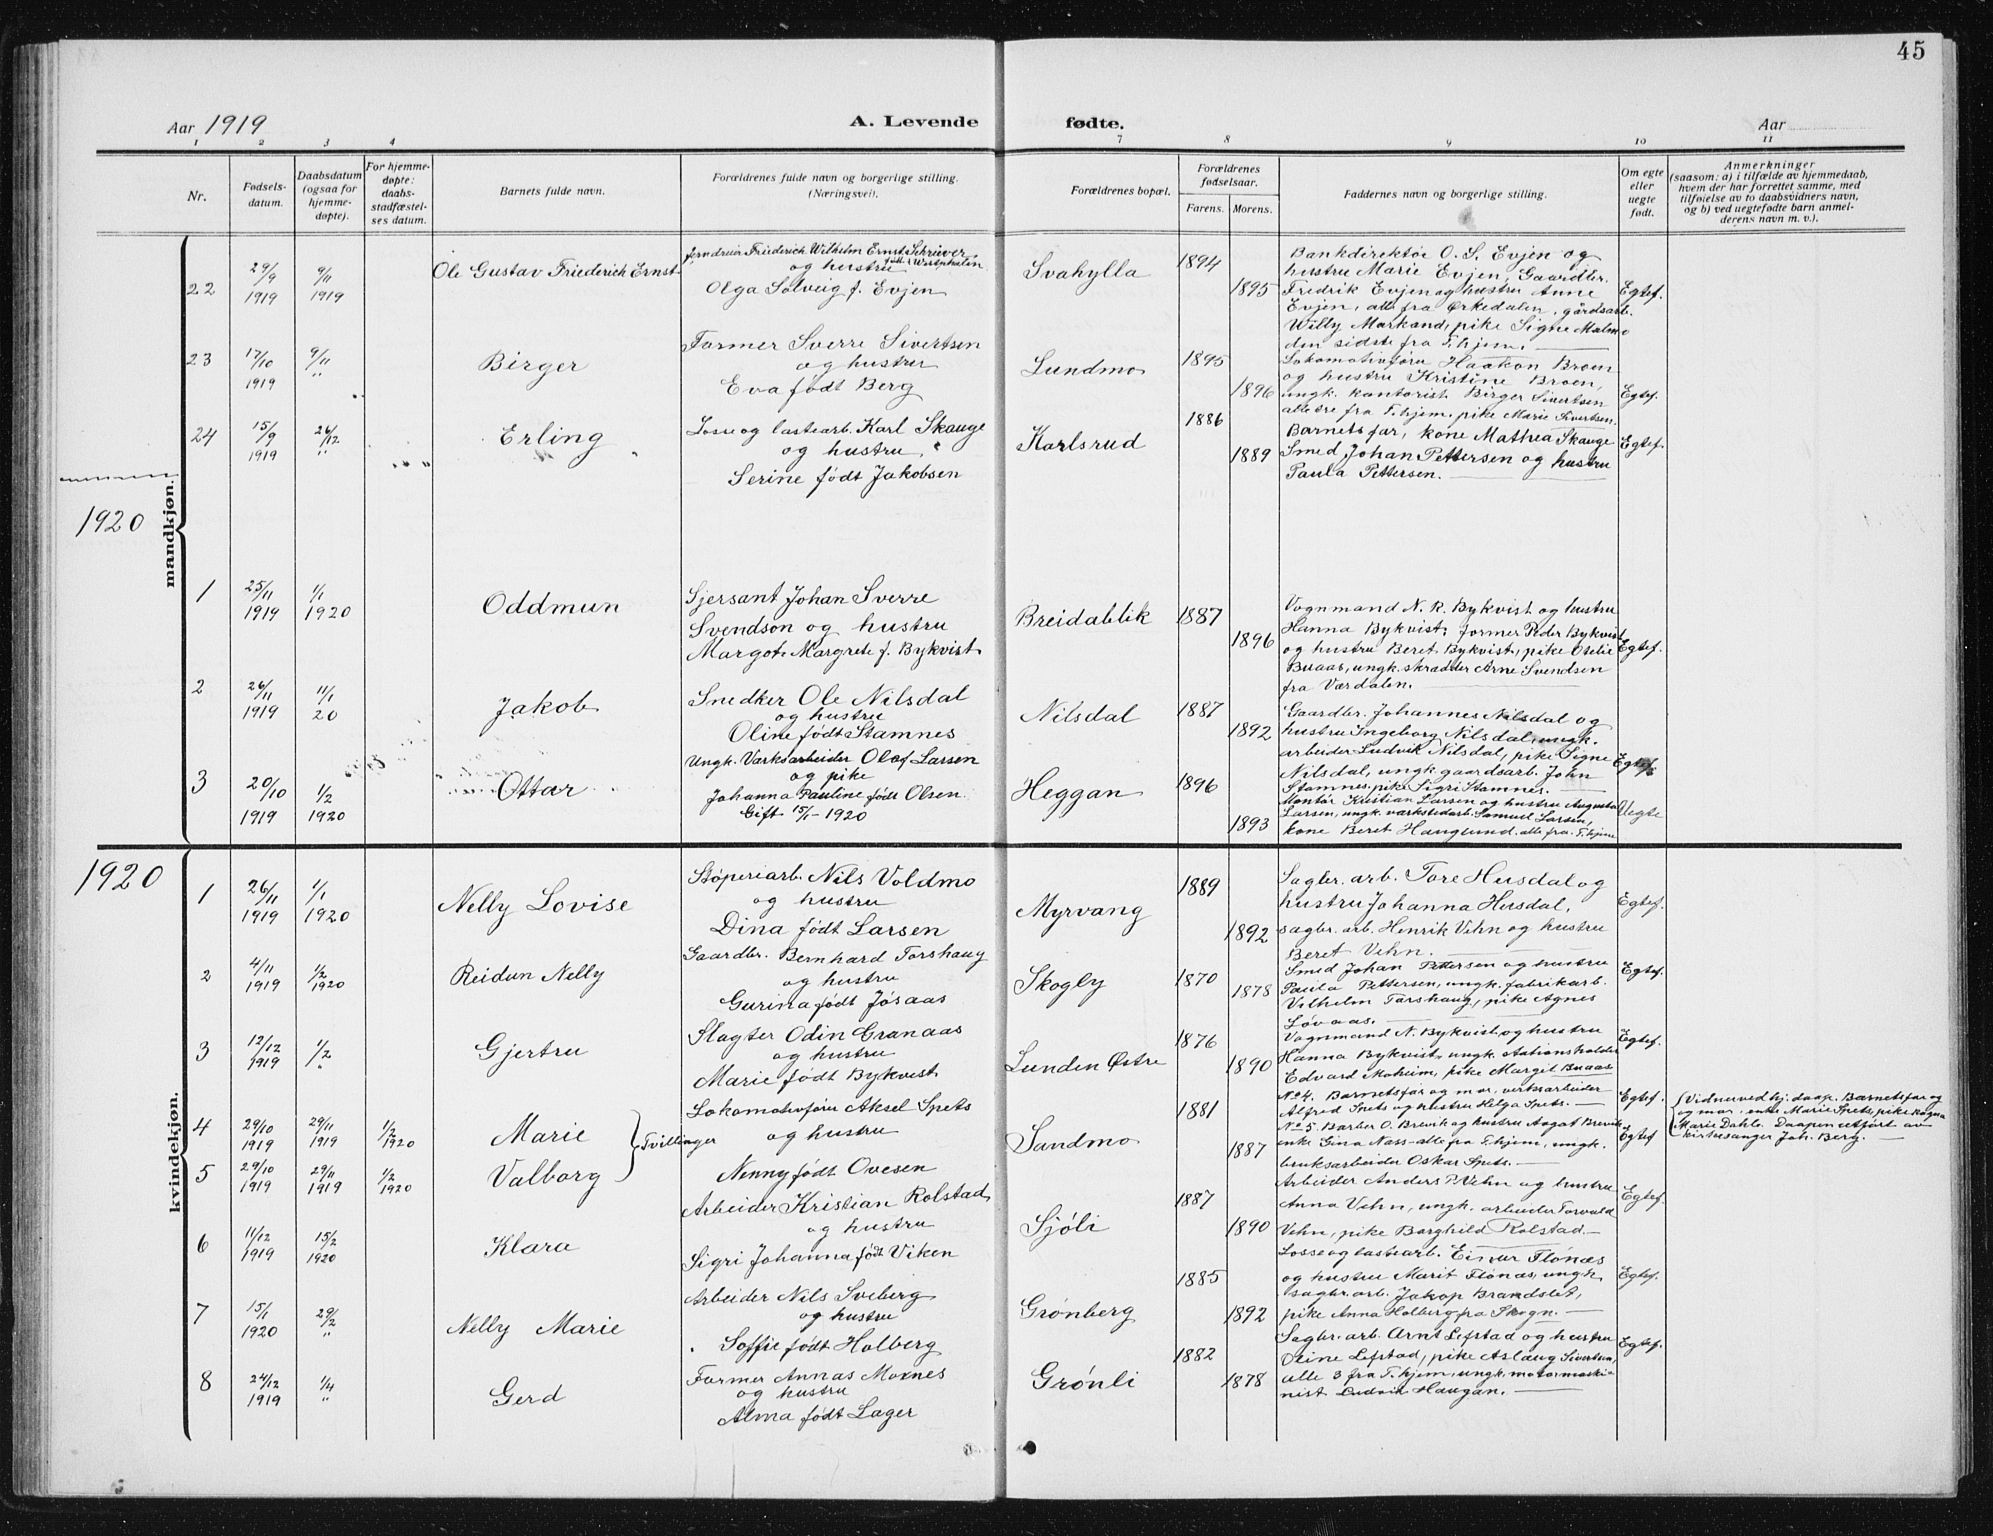 45
Aar 1919
A. Levende fødte.
Aar
1 2 3 4 7 8 9 10 11
Nr.
Fødsels-
datum.
Daabsdatum
(ogsaa for
hjemme-
døpte).
For hjemme-
døpte:
daabs-
stadfæstel-
ses datum.
Barnets fulde navn.
Forældrenes fulde navn og borgerlige stilling.
(Næringsvei).
Forældrenes bopæl.
Forældrenes
fødselsaar.
Farens. Morens.
Faddernes navn og borgerlige stilling.
Om egte
eller
uegte
født.
Anmerkninger
(saasom: a) i tilfælde av hjemmedaab,
hvem der har forrettet samme, med
tilføielse av to daabsvidners navn,
og b) ved uegtefødte barn anmel-
derens navn m. v.).
mandkjøn.
22
29/9
1919
9/11
1919
Ole Gustav Friederich Ernst
Jerndreier Friederich Wilhelm Ernst Schriever
og hustru født Westphalen
Olga Solveig f. Evjen
Svahylla
1894
1895
Bankdirektør O. S. Evjen og
hustru Marie Evjen, Gaardbr.
Fredrik Evjen og hustru Anne
Evjen, alle fra Ørkedalen, gårdsarb.
Willy Markand, pike Signe Malmo
den sidste fra T.hjem.
Egtef.
23
17/10
1919
9/11
"
Birger
Former Sverre Sivertsen
og hustru
Eva født Berg
Lundmo
1895
1896
Lokomotivføru Haakon Broen
og hustru Kristine Broen,
ungk. kontorist Birger Sivertsen
alle tre fra T.hjem. pike Marie Sivertsen.
Egtef.
24
15/9
1919
26/12
"
Erling
Losse og lastearb. Karl Skauge
og hustru
Serine født Jakobsen
Karlsrud
1886
1889
Barnets far, kone Mathea Skauge
Smed Johan Pettersen og hustru
Paula Pettersen.
Egtef.
1920
1
25/11
1919
1/1
1920
Oddmun
Sjersant Johan Sverre
Svendson og hustru
Margot Margrete f. Bykvist
Breidablik
1887
1896
Vognmand N. K. Bykvist og hustru
Hanna Bykvist, former Peder Bykvist
og hustru Beret Bykvist, pike Otelie
Buaas, ungk. skrædder Arne Svendsen
fra Værdalen.
Egtef.
2
26/11
1919
11/1
20
Jakob
Snedker Ole Nilsdal
og hustru
Oline født Stamnes
Nilsdal
1887
1892
Gaardbr. Johannes Nilsdal og
hustru Ingeborg Nilsdal, ungk.
arbeider Ludvik Nilsdal, pike Signe
Nilsdal, ungk. gaardsarb. John
Stamnes, pike Sigri Stamnes.
Egtef.
3
20/10
1919
1/2
1920
Ottar
Ungk. Værksarbeider Olaf Larsen
og pike
Johanna Pauline født Olsen.
Gift 15/1-1920
Heggan
1896
1893
Montør Kristian Larsen og hustru Augusta
Larsen, ungk. værkstedarb. Samuel Larsen,
kone Beret Hauglund. alle fra T.hjem
Uegte
1920
kvindekjøn.
1
26/11
1919
1/1
1920
Nelly Lovise
Støperiarb. Nils Voldmo
og hustru
Dina født Larsen
Myrvang
1889
1892
Sagbr. arb. Tore Husdal og
hustru Johanna Husdal,
sagbr. arb. Henrik Vehn og hustru
Beret Vehn.
Egtef.
2
4/11
1919
1/2
1920
Reidun Nelly
Gaardbr. Bernhard Torshaug
og hustru
Gurina født Jøsaas
Skogly
1870
1878
Smed Johan Pettersen og hustru
Paula Pettersen, ungk. fabrikarb.
Vilhelm Torshaug, pike Agnes
Løvaas.
Egtef.
3
12/12
1919
1/2
"
Gjertru
Slagter Odin Granaas
og hustru
Marie født Bykvist
Lunden Østre
1876
1890
Vognmand N. Bykvist og hustru
Hanna Bykvist, ungk. Aationsholder
Edvard Moheim, pike Margit Buaas
Egtef.
4
29/10
1919
29/11
1919
1/2
1920
Marie
Tvillinger
Lokomotivføru Aksel Spets
og hustru
Nenny født Ovesen
Sandmo
1881
1887
No 4. Barnets far og mor, verksarbeider
Alfred Spets og hustru Helga Spets.
No 5. Barber O. Brenk og hustru Aagat Brevik
enke Gina Nass - alle fra T.hjem, ungk.
bruksarbeider Oskar Spets.
Egtef.
Egtef
Vidner ved hj. daap. Barnets far og
og mor, enke Marie Spets, pike Ragna
Marie Dahl. Daapen utført av
kirkesanger Joh. Berg.
5
29/10
1919
29/11
1919
1/2
1920
Valborg
6
11/12
1919
15/2
1920
Klara
Arbeider Kristian Rolstad
og hustru
Sigri Johanna født Viken
Sjøli
1887
1890
Arbeider Anders P. Vehn og hustru
Anna Vehn, ungk. arbeider Torvald
Vehn, pike Borghild Rolstad.
Egtef.
7
15/1
1920
29/2
"
Nelly Marie
Arbeider Nils Sveberg
og hustru
Soffie født Holberg
Grønberg
1885
1892
Losse og lastearb. Einar Flønæs
og hustru Marit Flønæs, ungk.
sagbr. arb. Jakop Brandslet,
pike Anna Holberg fra Skogn.
Egtef.
8
24/12
1919
1/4
"
Gerd
Former Annas Moxnes
og hustru
Alma født Lager
Grønli
1882
1878
Sagbr. arb. Arnt Lefstad og hustru
Oline Lefstad, pike Aslaug Sivertsen,
alle 3 fra T.hjem, ungk. motormaski-
nist Ludvik Haugan.
Egtef.